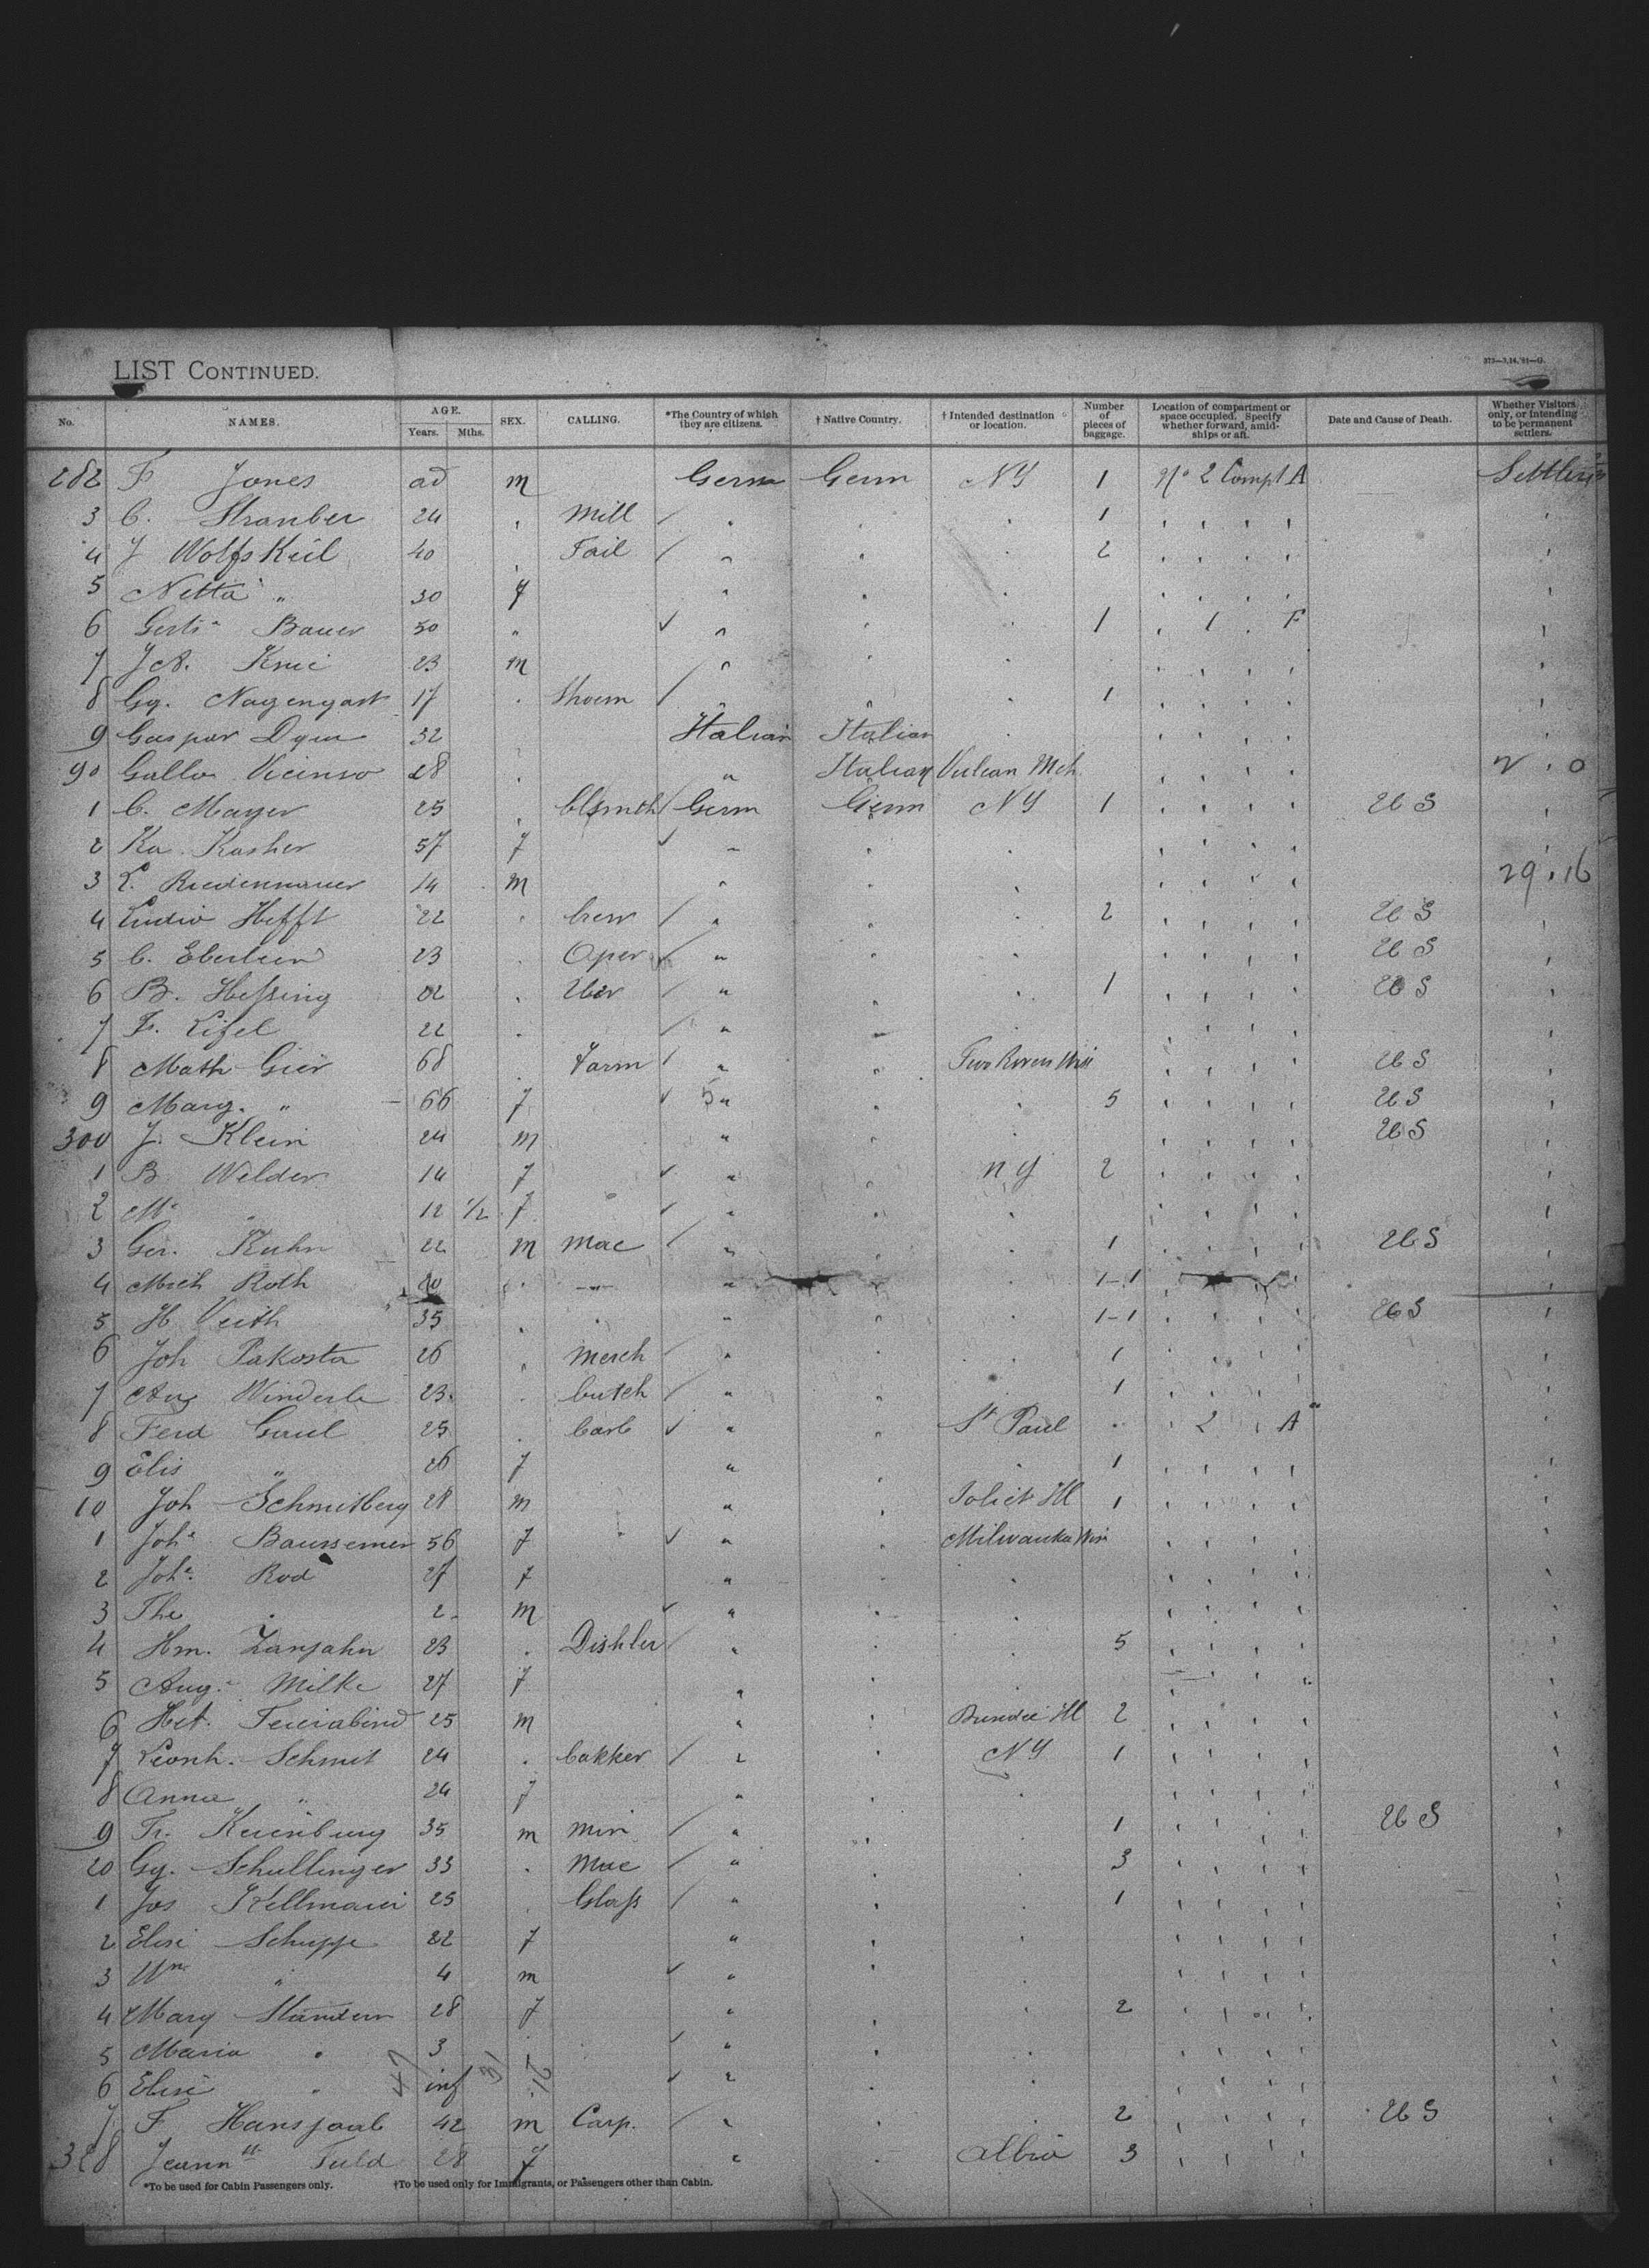 LIST CONTINUED.
373—3,14,'91—G.
No. NAMES. AGE. Years. Mths. SEX. CALLING. *The Country of which they are citizens. † Native Country. † Intended destination or location. Number of pieces of baggage. Location of compartment or space occupied. Specify whether forward, amidships or aft. Date and Cause of Death. Whether Visitors only, or intending to be permanent settlers.
282 F Jones ad m Germ Germ NY 1 No 2 Compt A
3 C. Stranber 24 Mill 1
4 J Wolfskeil 40 Tail 2
5 Netta " 30 f
6 Bauer 30 " 1 1 F
7 23 m
8 Gg. Nagengast 17 Shoem 1
9 Gaspar 32 Italian Italian
90 Gallo Vicenso 28 " Italian Vulcan Mch
1 C. Mayer 25 Blsmth Germ Germ NY 1 US
2 Ka. Kasher 57 f
3 14 m 29.16
4 Hefft 22 2 US
5 C. 23 Oper " US
6 B. Hessing 22 " 1 US
7 Fr. 22 "
8 Math Gier 68 Farm " Two Rivers Wis US
9 Marg. " 66 f 5 " 5 US
300 J. Klein 24 m " US
1 B Wilder 14 f " NY 2
2 12 1/2 f "
3 Ger. Kuhn 22 m Mac " 1 US
4 Mich Roth " 1-1
5 H Veith 35 " 1-1 US
6 Joh Pakosta 26 Merch " 1
7 Aug Winderle 23 butch " 1
8 Ferd Gaul 25 barb " St Paul 2 A
9 Elis " 26 f " 1
10 Joh Schmitberg 28 m " Joliet Ill 1
1 56 f " Milwaukee Wis
2 Rod 27 f "
3 The 2 m "
4 Hm. Zanjahn 23 Dishler " 5
5 Aug. Milke 27 f "
6 25 m " Ill 2
7 Leonh. Schmit 24 bakker " NY 1
8 Anna " 24 f "
9 Fr. 35 m Min " 1 US
20 Gg. Schullinger 33 Mac " 3
1 Jos Kellmaier 25 Glass " 1
2 Elise Schuppe 22 f "
3 Wm " 4 m "
4 Mary 28 f " 2
5 Maria " 3 "
6 Elise " inf "
7 F Hansjaab 42 m Carp. " 2 US
328 Fuld 28 f " Albia 3
*To be used for Cabin Passengers only. †To be used only for Immigrants, or Passengers other than Cabin.